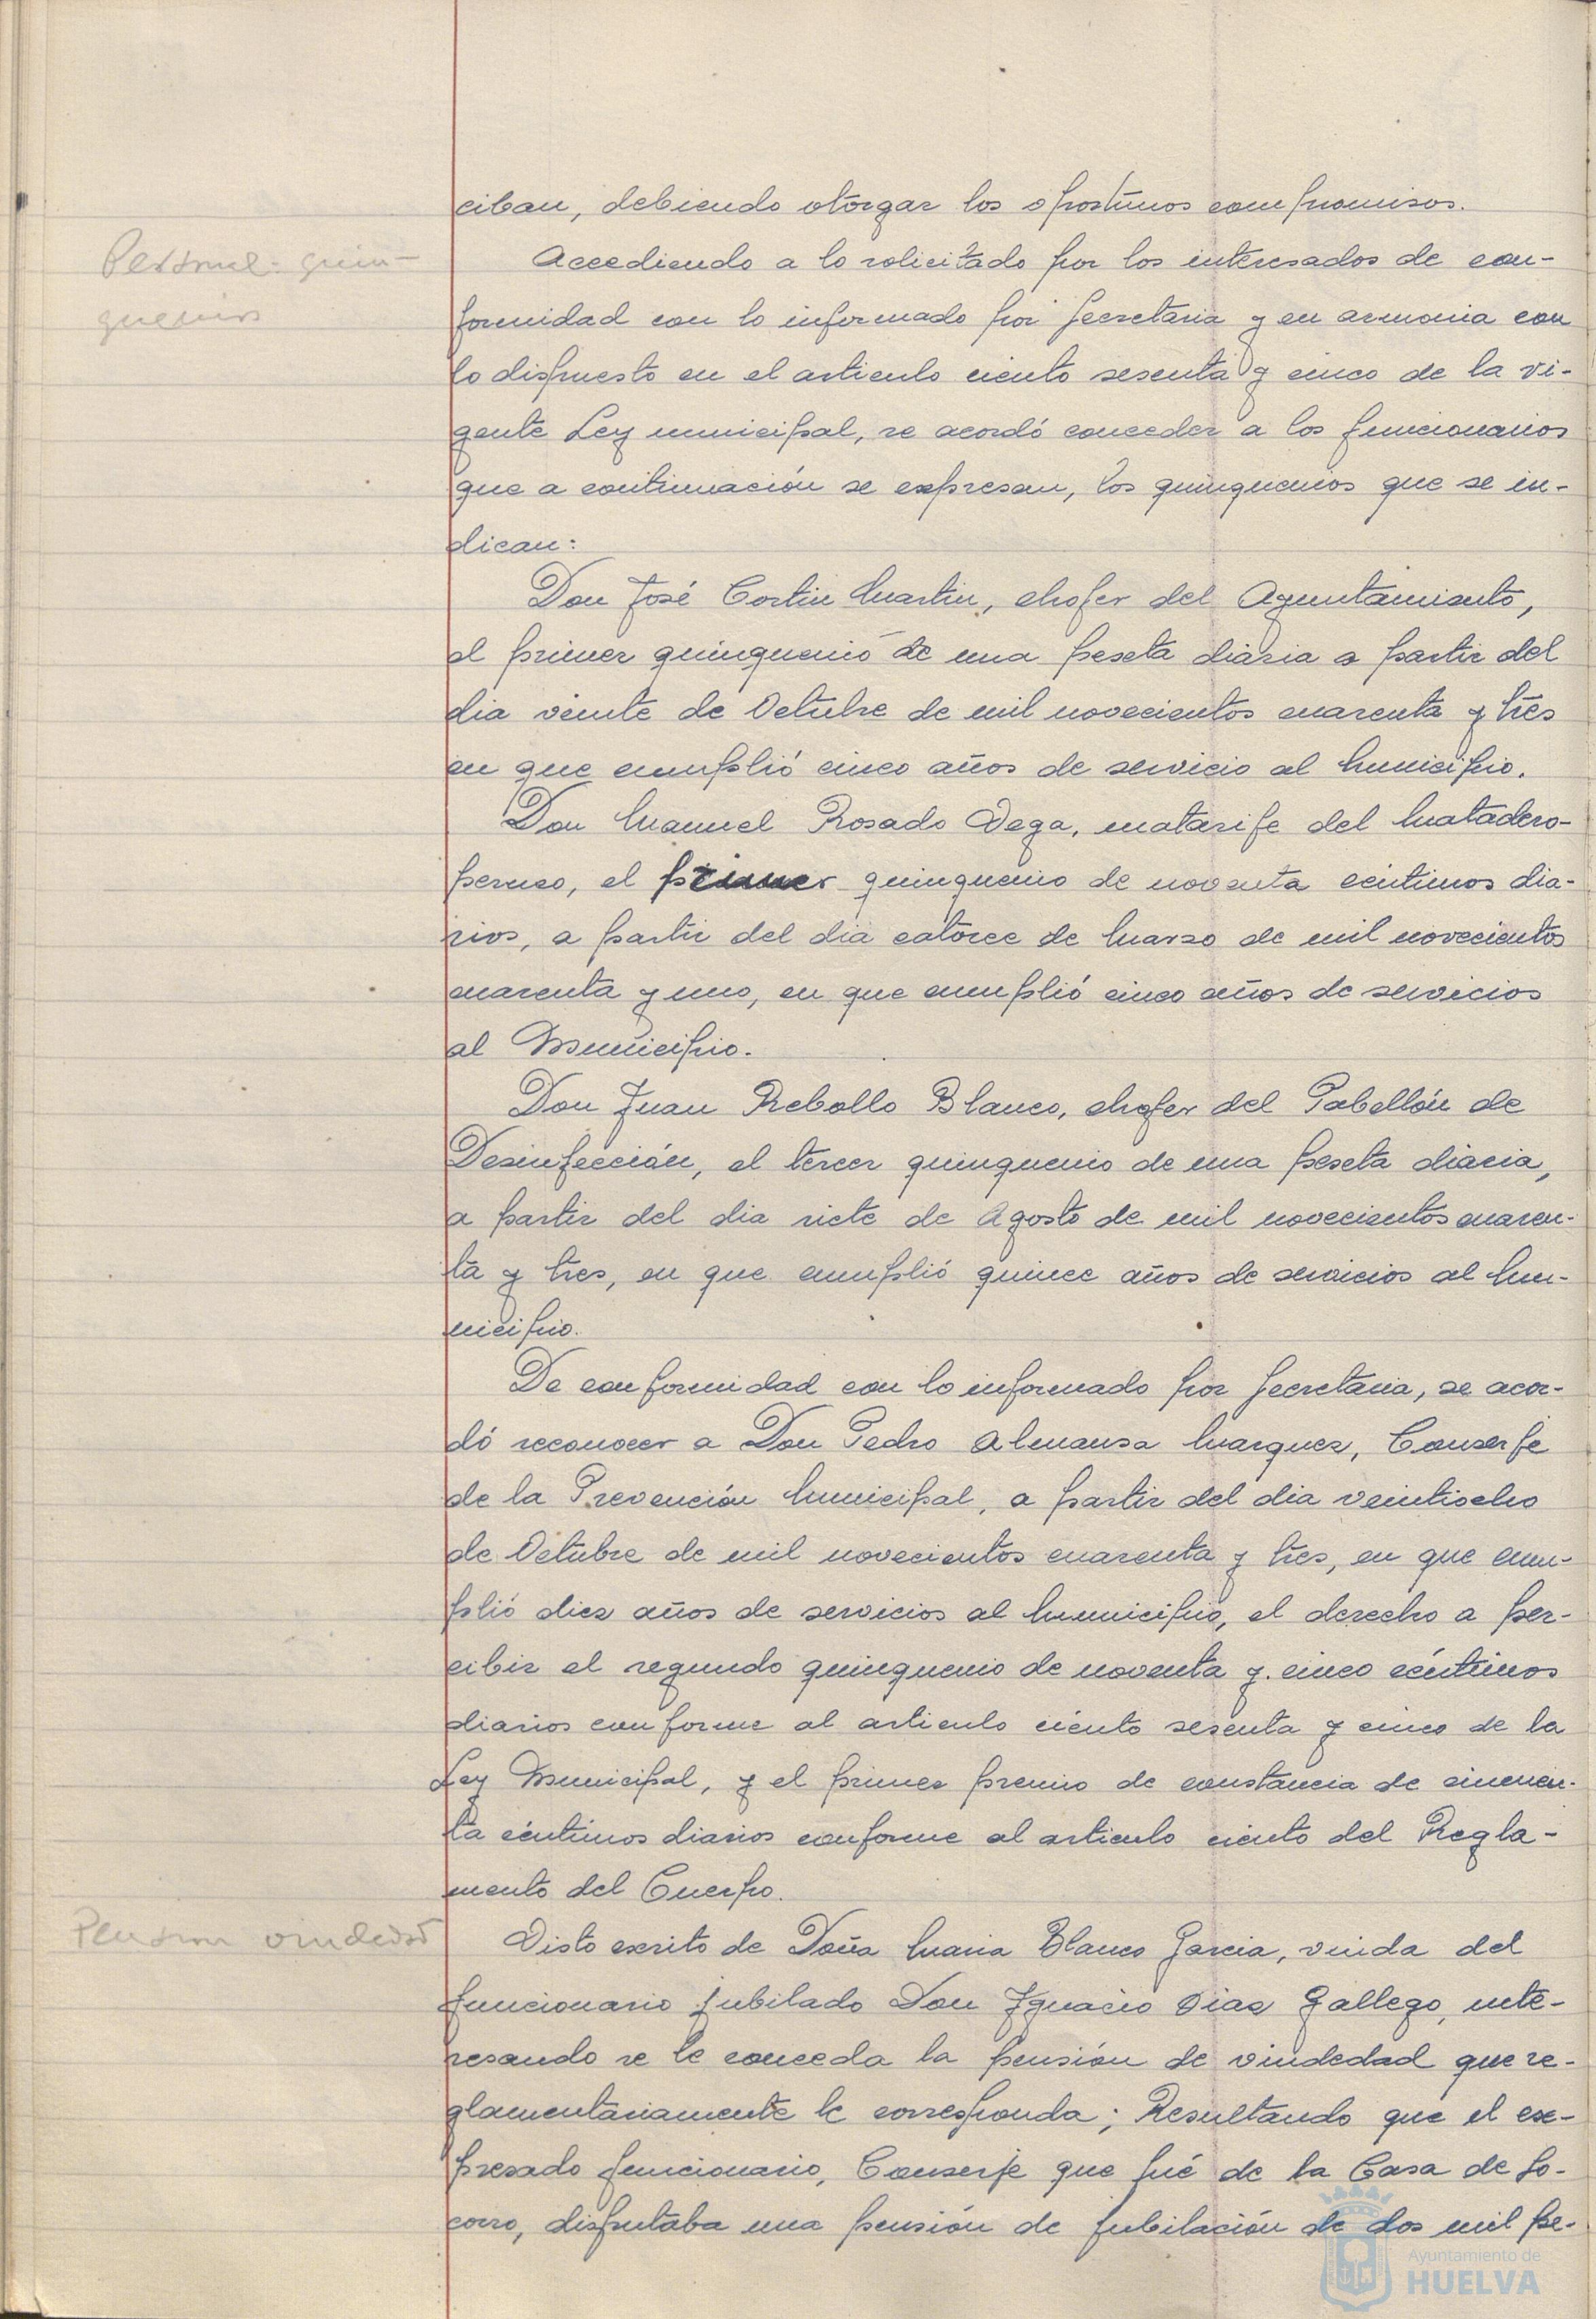 ciban, debiendo otorgar los oportunos compromisos.
Personal-quin-
quenios
Accediendo a lo solicitado por los interesados de con-
formidad con lo informado por Secretaria y en armonia con
lo dispuesto en el articulo ciento sesenta y cinco de la vi-
gente Ley municipal, se acordó conceder a los funcionarios
que a continuación se expresan, los quinquenios que se in-
dican:
Don José Cortin Martin, chofer del Ayuntamiento,
el primer quinquenio de una peseta diaria a partir del
dia veinte de Octubre de mil novecientos cuarenta y tres
en que cumplió cinco años de servicio al Municipio.
Don Manuel Rosado Vega, matarife del Matadero-
permiso, el primer quinquenio de noventa centimos dia-
rios, a partir del dia catorce de Marzo de mil novecientos
cuarenta y uno, en que cumplió cinco años de servicios
al Municipio.
Don Juan Rebollo Blanco, chofer del Pabellón de
Desinfección, el tercer quinquenio de una peseta diaria,
a partir del dia siete de Agosto de mil novecientos cuaren-
ta y tres, en que cumplió quince años de servicios al Mu-
nicipio.
De conformidad con lo informado por Secretaria, se acor-
dó reconocer a Don Pedro Almansa Marquez, Conserje
de la Prevención Municipal, a partir del dia veintiocho
de Octubre de mil novecientos cuarenta y tres, en que cum-
plió diez años de servicios al Municipio, el derecho a per-
cibir el segundo quinquenio de noventa y cinco céntimos
diarios conforme al articulo ciento sesenta y cinco de la
Ley Municipal, y el primer premio de constancia de cincuen-
ta céntimos diarios conforme al articulo ciento del Regla-
mento del Cuerpo.
Pension viudedad
Visto escrito de Doña Maria Blanco Garcia, viuda del
funcionario jubilado Don Ignacio Diaz Gallego, inte-
resando se le conceda la pensión de viudedad que re-
glamentariamente le corresponda; Resultando que el ex-
presado funcionario, Conserje que fué de la Casa de So-
corro, disfrutaba una pensión de jubilación de dos mil pe-
Ayuntamiento de
HUELVA